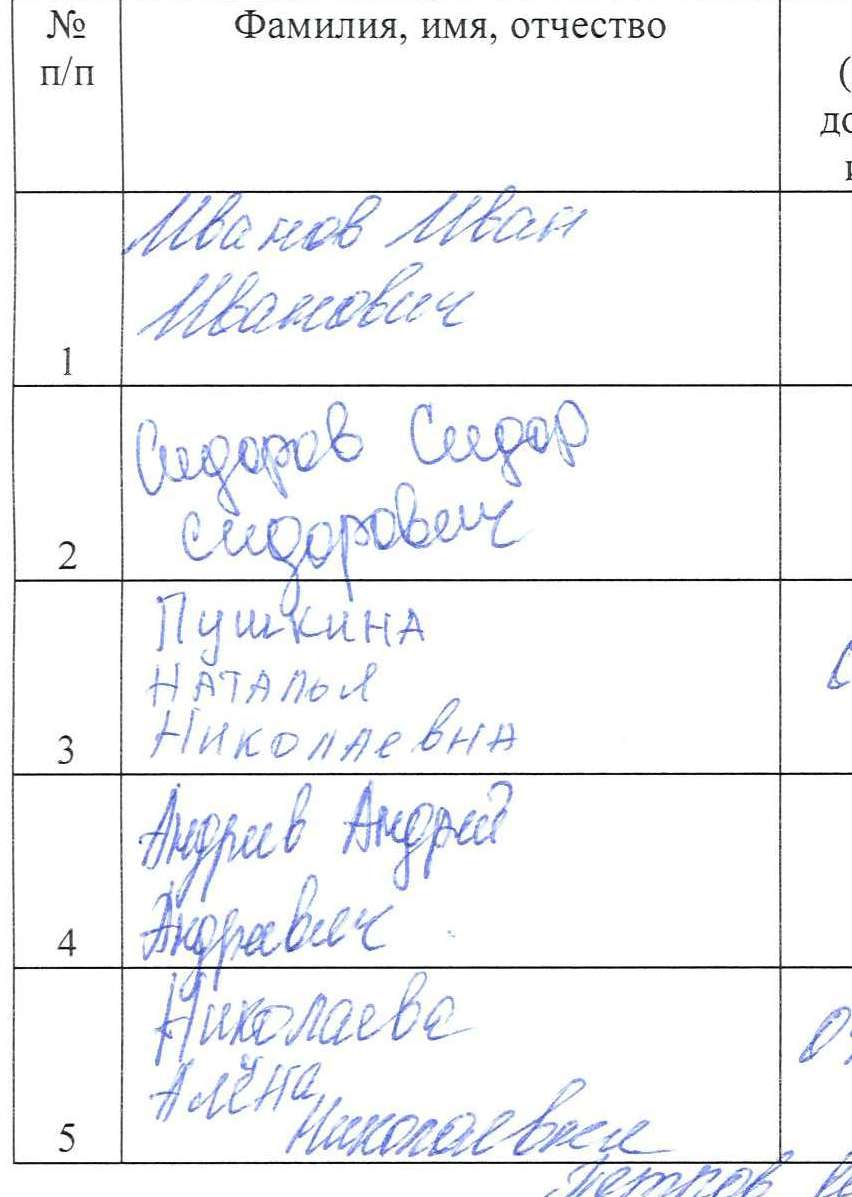 № Фамилия, имя, отчество
п/п
Иванов Иван
Иванович
1
Сидоров Сидор
Сидорович
2
Пушкина
Наталья
Николаевна
3
Андриев Андрей
Андреевич
4
Николаева
Алёна
Николаевна
5
Петров